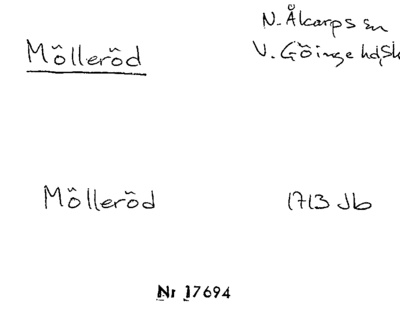 N. Åkarps sn
Mölleröd V. Göinge hd, Sk
Mölleröd 1713 Jb
Nr 17694